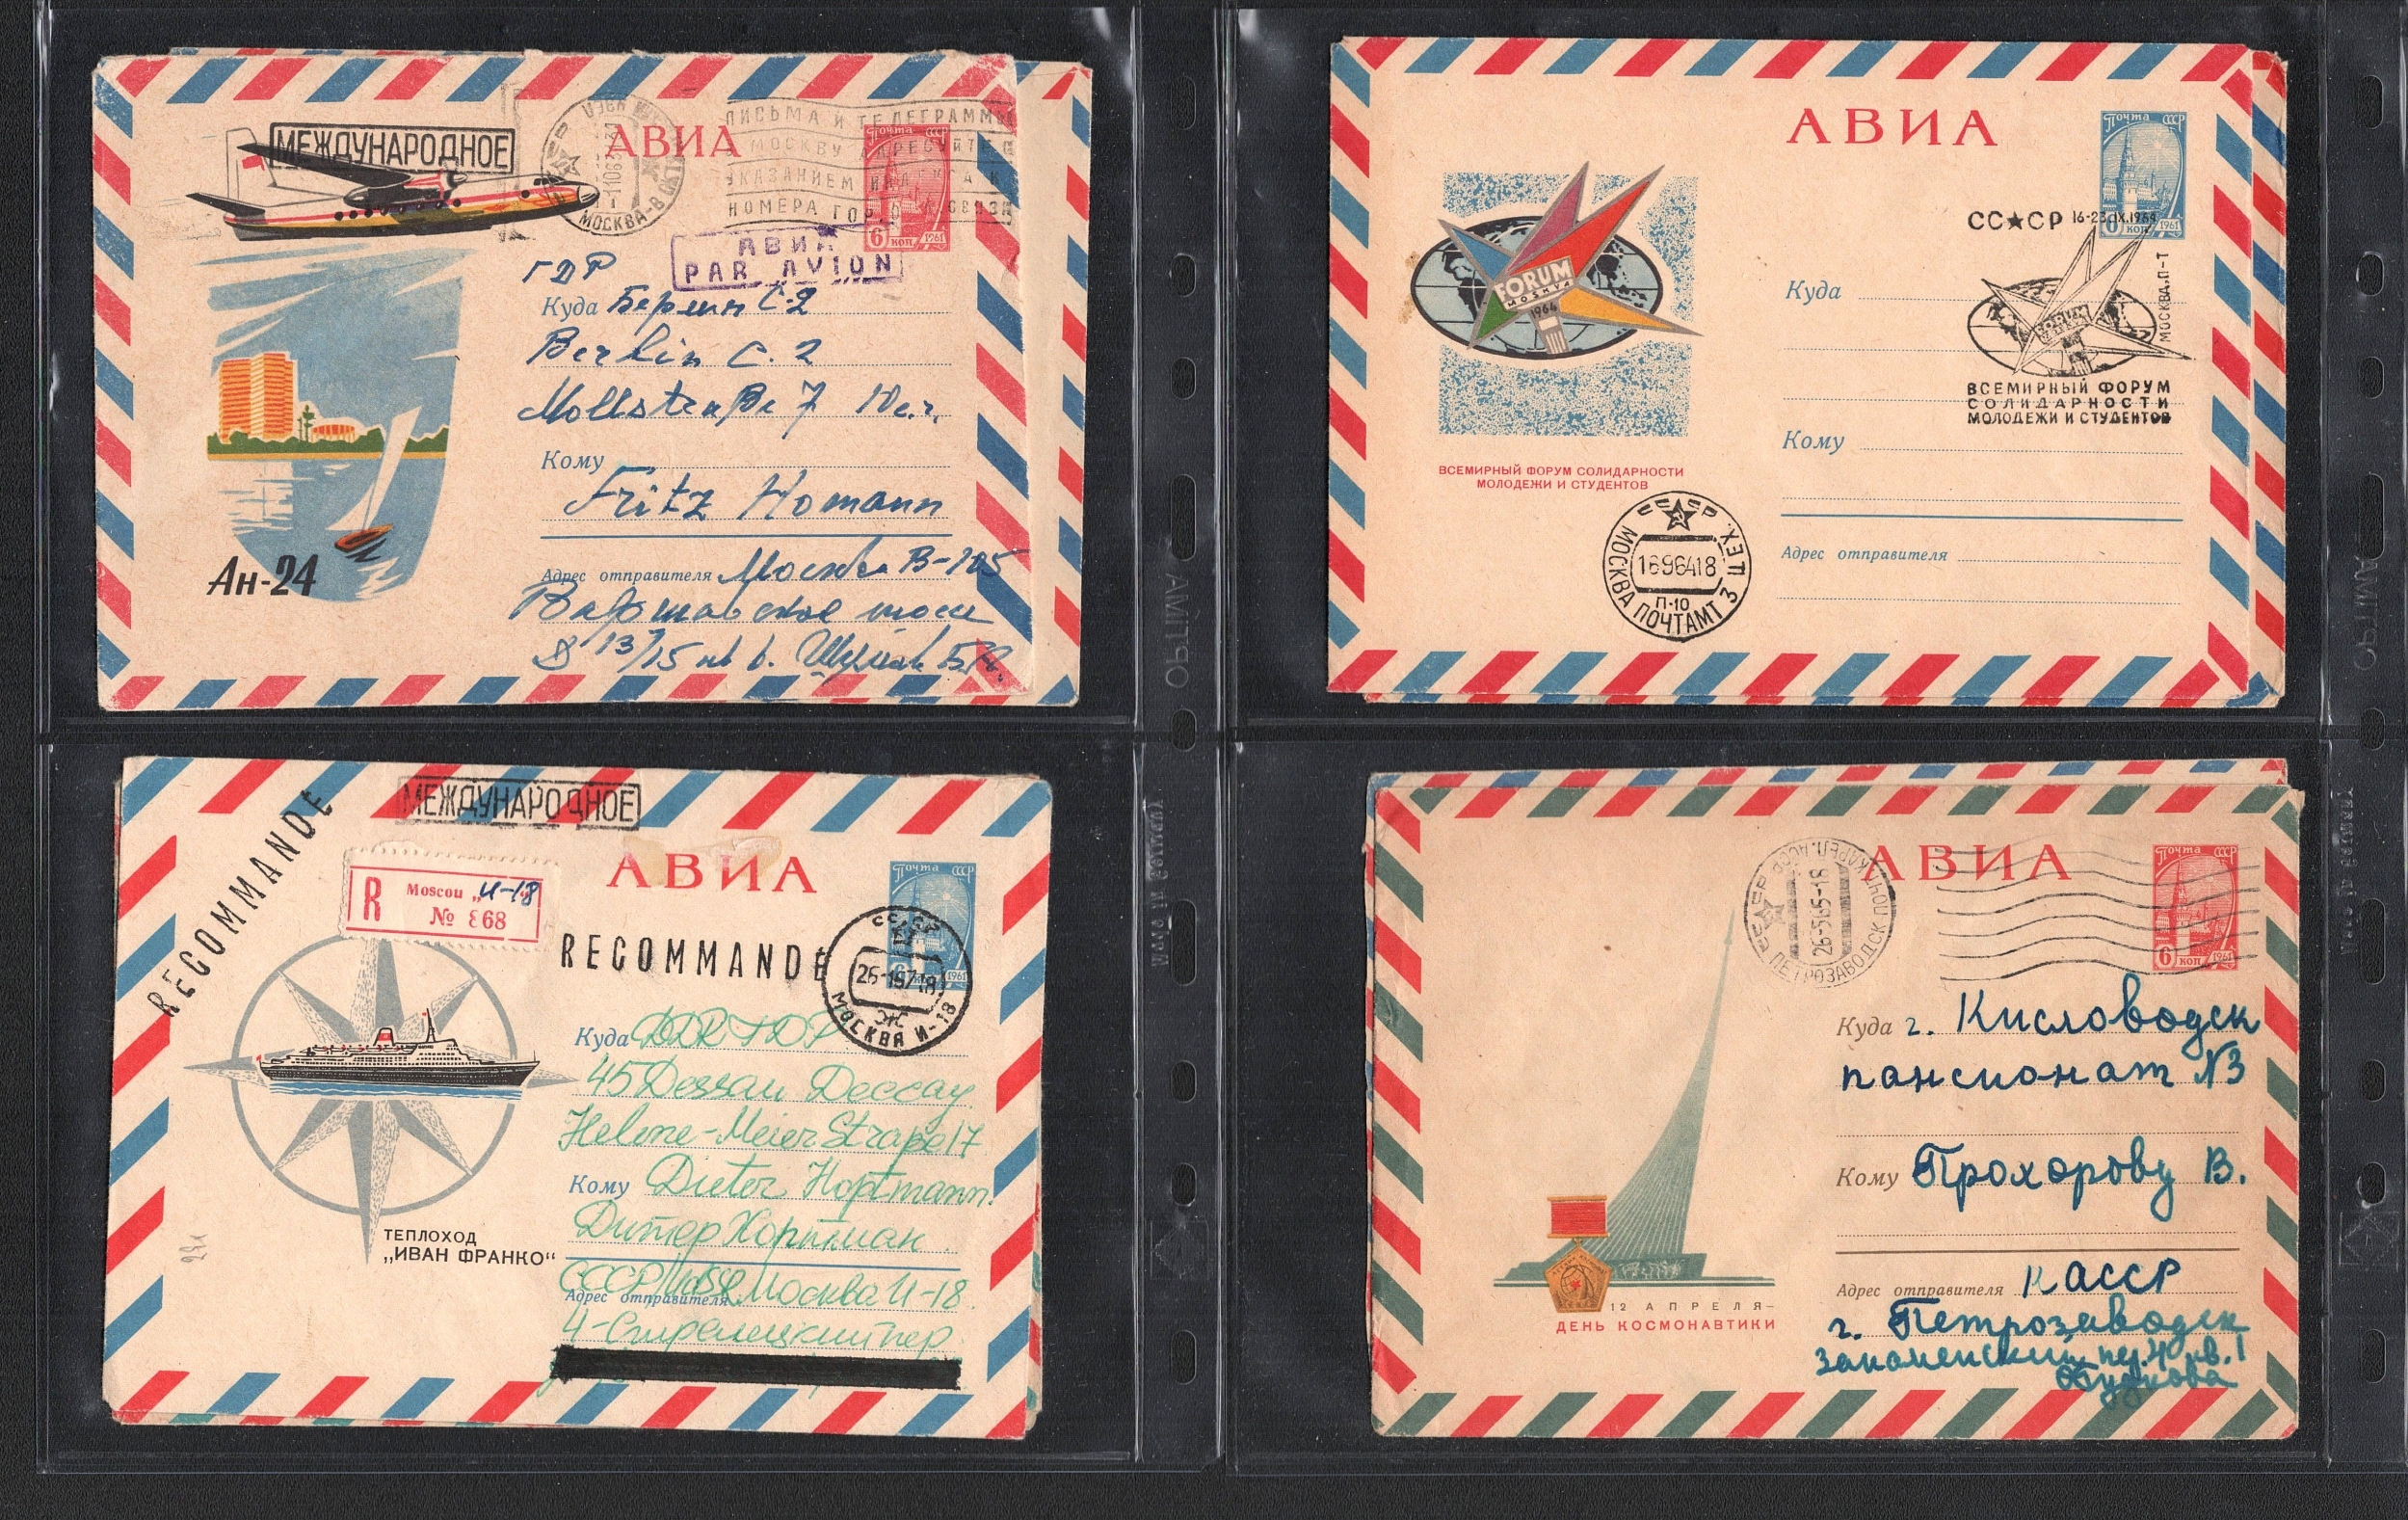 МЕЖДУНАРОДНОЕ
АВИА
ПИСЬМА И ТЕЛЕГРАММЫ
МОСКВУ АДРЕСУЙТЕ С
УКАЗАНИЕМ ИНДЕКСА И
НОМЕРА ГОР. О СВЯЗИ
МОСКВА-В
Почта СССР
6 коп 1961
АВИА
PAR AVION
ГДР
Куда Берлин С-2
Berlin C. 2
Mollstraße 7
Кому
Fritz Homann
Адрес отправителя Москва В-105
Варшавское шоссе
13/15 кв 6.
Ан-24
АВИА
Почта СССР
6 коп 1961
СССР 16-23.IX.1964
FORUM
МОSKVA
1964
МОСКВА.П-Т
FORUM
ВСЕМИРНЫЙ ФОРУМ
СОЛИДАРНОСТИ
МОЛОДЕЖИ И СТУДЕНТОВ
Куда
Кому
Адрес отправителя
ВСЕМИРНЫЙ ФОРУМ СОЛИДАРНОСТИ
МОЛОДЕЖИ И СТУДЕНТОВ
СССР
1696418
П-10
МОСКВА ПОЧТАМТ 3 ЦЕХ.
RECOMMANDE
МЕЖДУНАРОДНОЕ
АВИА
R Moscou „И-18
№ 868
Почта СССР
6 1961
RECOMMANDE
СССР
26-16718
Ж
МОСКВА И-18
Куда DDR ГДР
45 Dessau Дессау
Helene-Meier Straße 17
Кому Dieter Hoptmann.
Дитер Хоптман.
СССР Москва И-18
Адрес отправителя
4-Стрелецкий пер
ТЕПЛОХОД
„ИВАН ФРАНКО“
АВИА
Почта СССР
6 коп 1961
СССР
26-565-18
ПЕТРОЗАВОДСК ПОЧТ. КАРЕЛ. АССР
Куда г. Кисловодск
пансионат N3
Кому Прохорову В.
Адрес отправителя КАССР
г. Петрозаводск
пер. 4 кв. 1
12 АПРЕЛЯ–
ДЕНЬ КОСМОНАВТИКИ